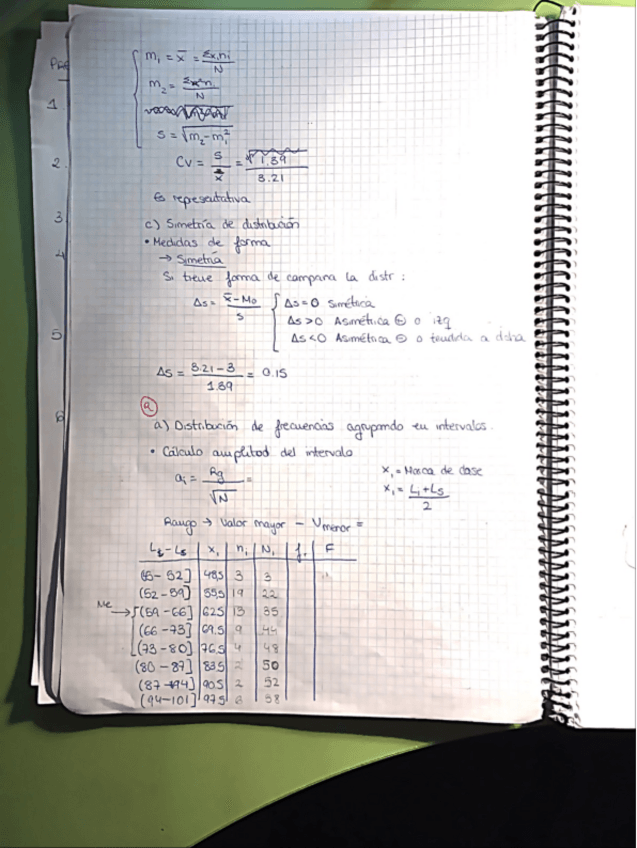 m₁ = x̄ = Σxᵢnᵢ / N
m₂ = Σx²nᵢ / N
S = √(m₂ - m₁²)
CV = S / x̄ = √1.39 / 3.21
Es representativa
c) Simetría de distribución
• Medidas de forma
→ Simetría
Si tiene forma de campana la distr :
As = (x̄ - Mo) / S
As = 0 Simétrica
As > 0 Asimétrica ⊕ o izq
As < 0 Asimétrica ⊖ o tendida a dcha
As = (3.21 - 3) / 1.39 = 0.15
a) Distribución de frecuencias agrupando en intervalos.
• Cálculo amplitud del intervalo
aᵢ = Rg / √N =
xᵢ = Marca de clase
xᵢ = (Lᵢ + Ls) / 2
Rango → Valor mayor - Vmenor =
Lᵢ - Ls | xᵢ | nᵢ | Nᵢ | fᵢ | F
(45 - 52] | 48,5 | 3 | 3
(52 - 59] | 55,5 | 19 | 22
Me → (59 - 66] | 62,5 | 13 | 35
(66 - 73] | 69,5 | 9 | 44
(73 - 80] | 76,5 | 4 | 48
(80 - 87] | 83,5 | 2 | 50
(87 - 94] | 90,5 | 2 | 52
(94 - 101] | 97,5 | 6 | 58
1
2
3
4
5
6